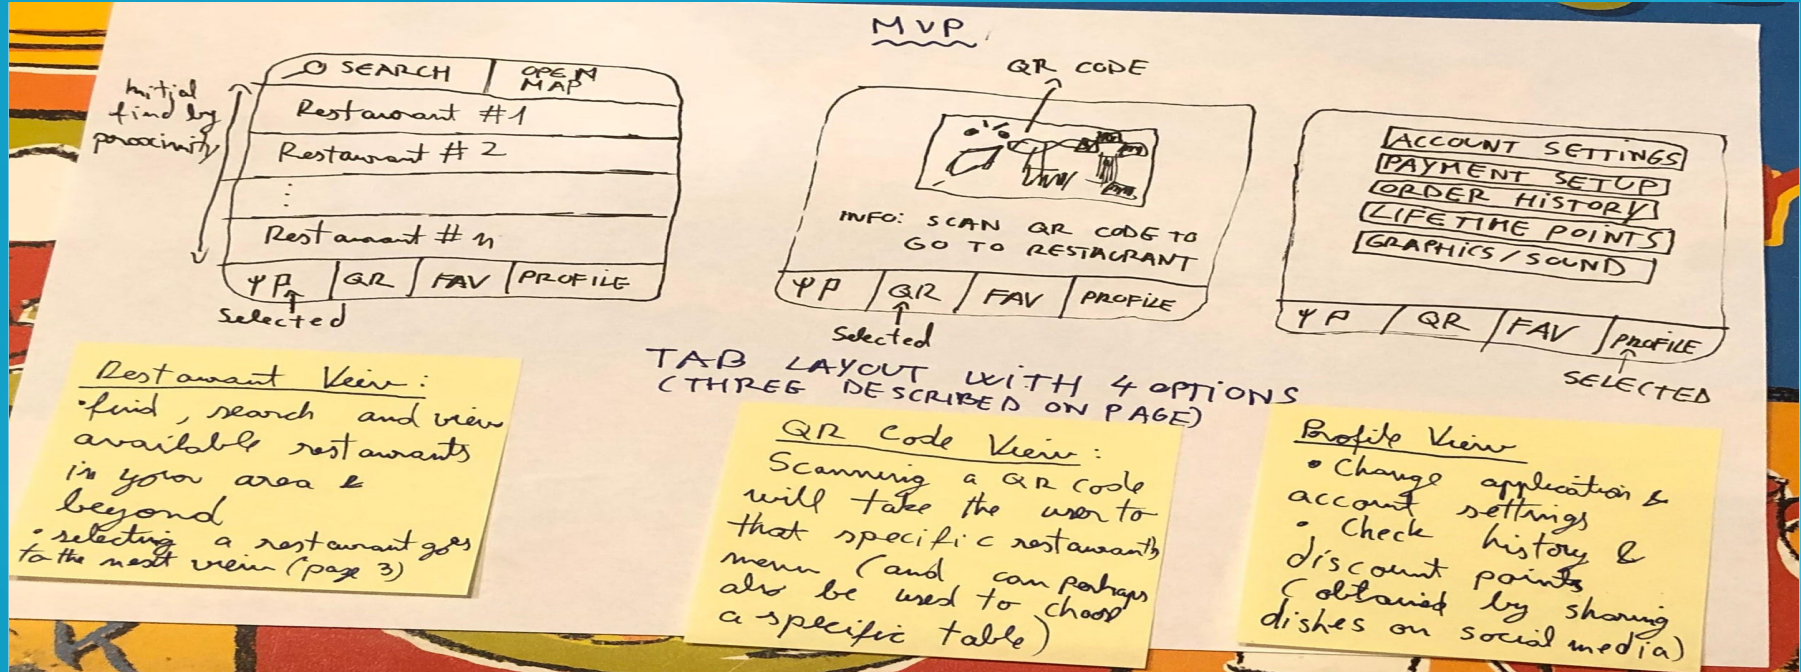 MVP
SEARCH
OPEN
MAP
Initial
find by
proximity
Restaurant #1
Restaurant #2
Restaurant #n
QR
FAV
PROFILE
Selected
QR CODE
INFO: SCAN QR CODE TO
GO TO RESTAURANT
QR
FAV
PROFILE
Selected
ACCOUNT SETTINGS
PAYMENT SETUP
ORDER HISTORY
LIFETIME POINTS
GRAPHICS/SOUND
QR
FAV
PROFILE
SELECTED
TAB LAYOUT WITH 4 OPTIONS
(THREE DESCRIBED ON PAGE)
Restaurant View:
• find, search and view
available restaurants
in your area &
beyond
• selecting a restaurant goes
to the next view (page 3)
QR Code View:
Scanning a QR code
will take the user to
that specific restaurants
menu (and can perhaps
also be used to choose
a specific table)
Profile View
• Change application &
account settings
• Check history &
discount points
(obtained by sharing
dishes on social media)